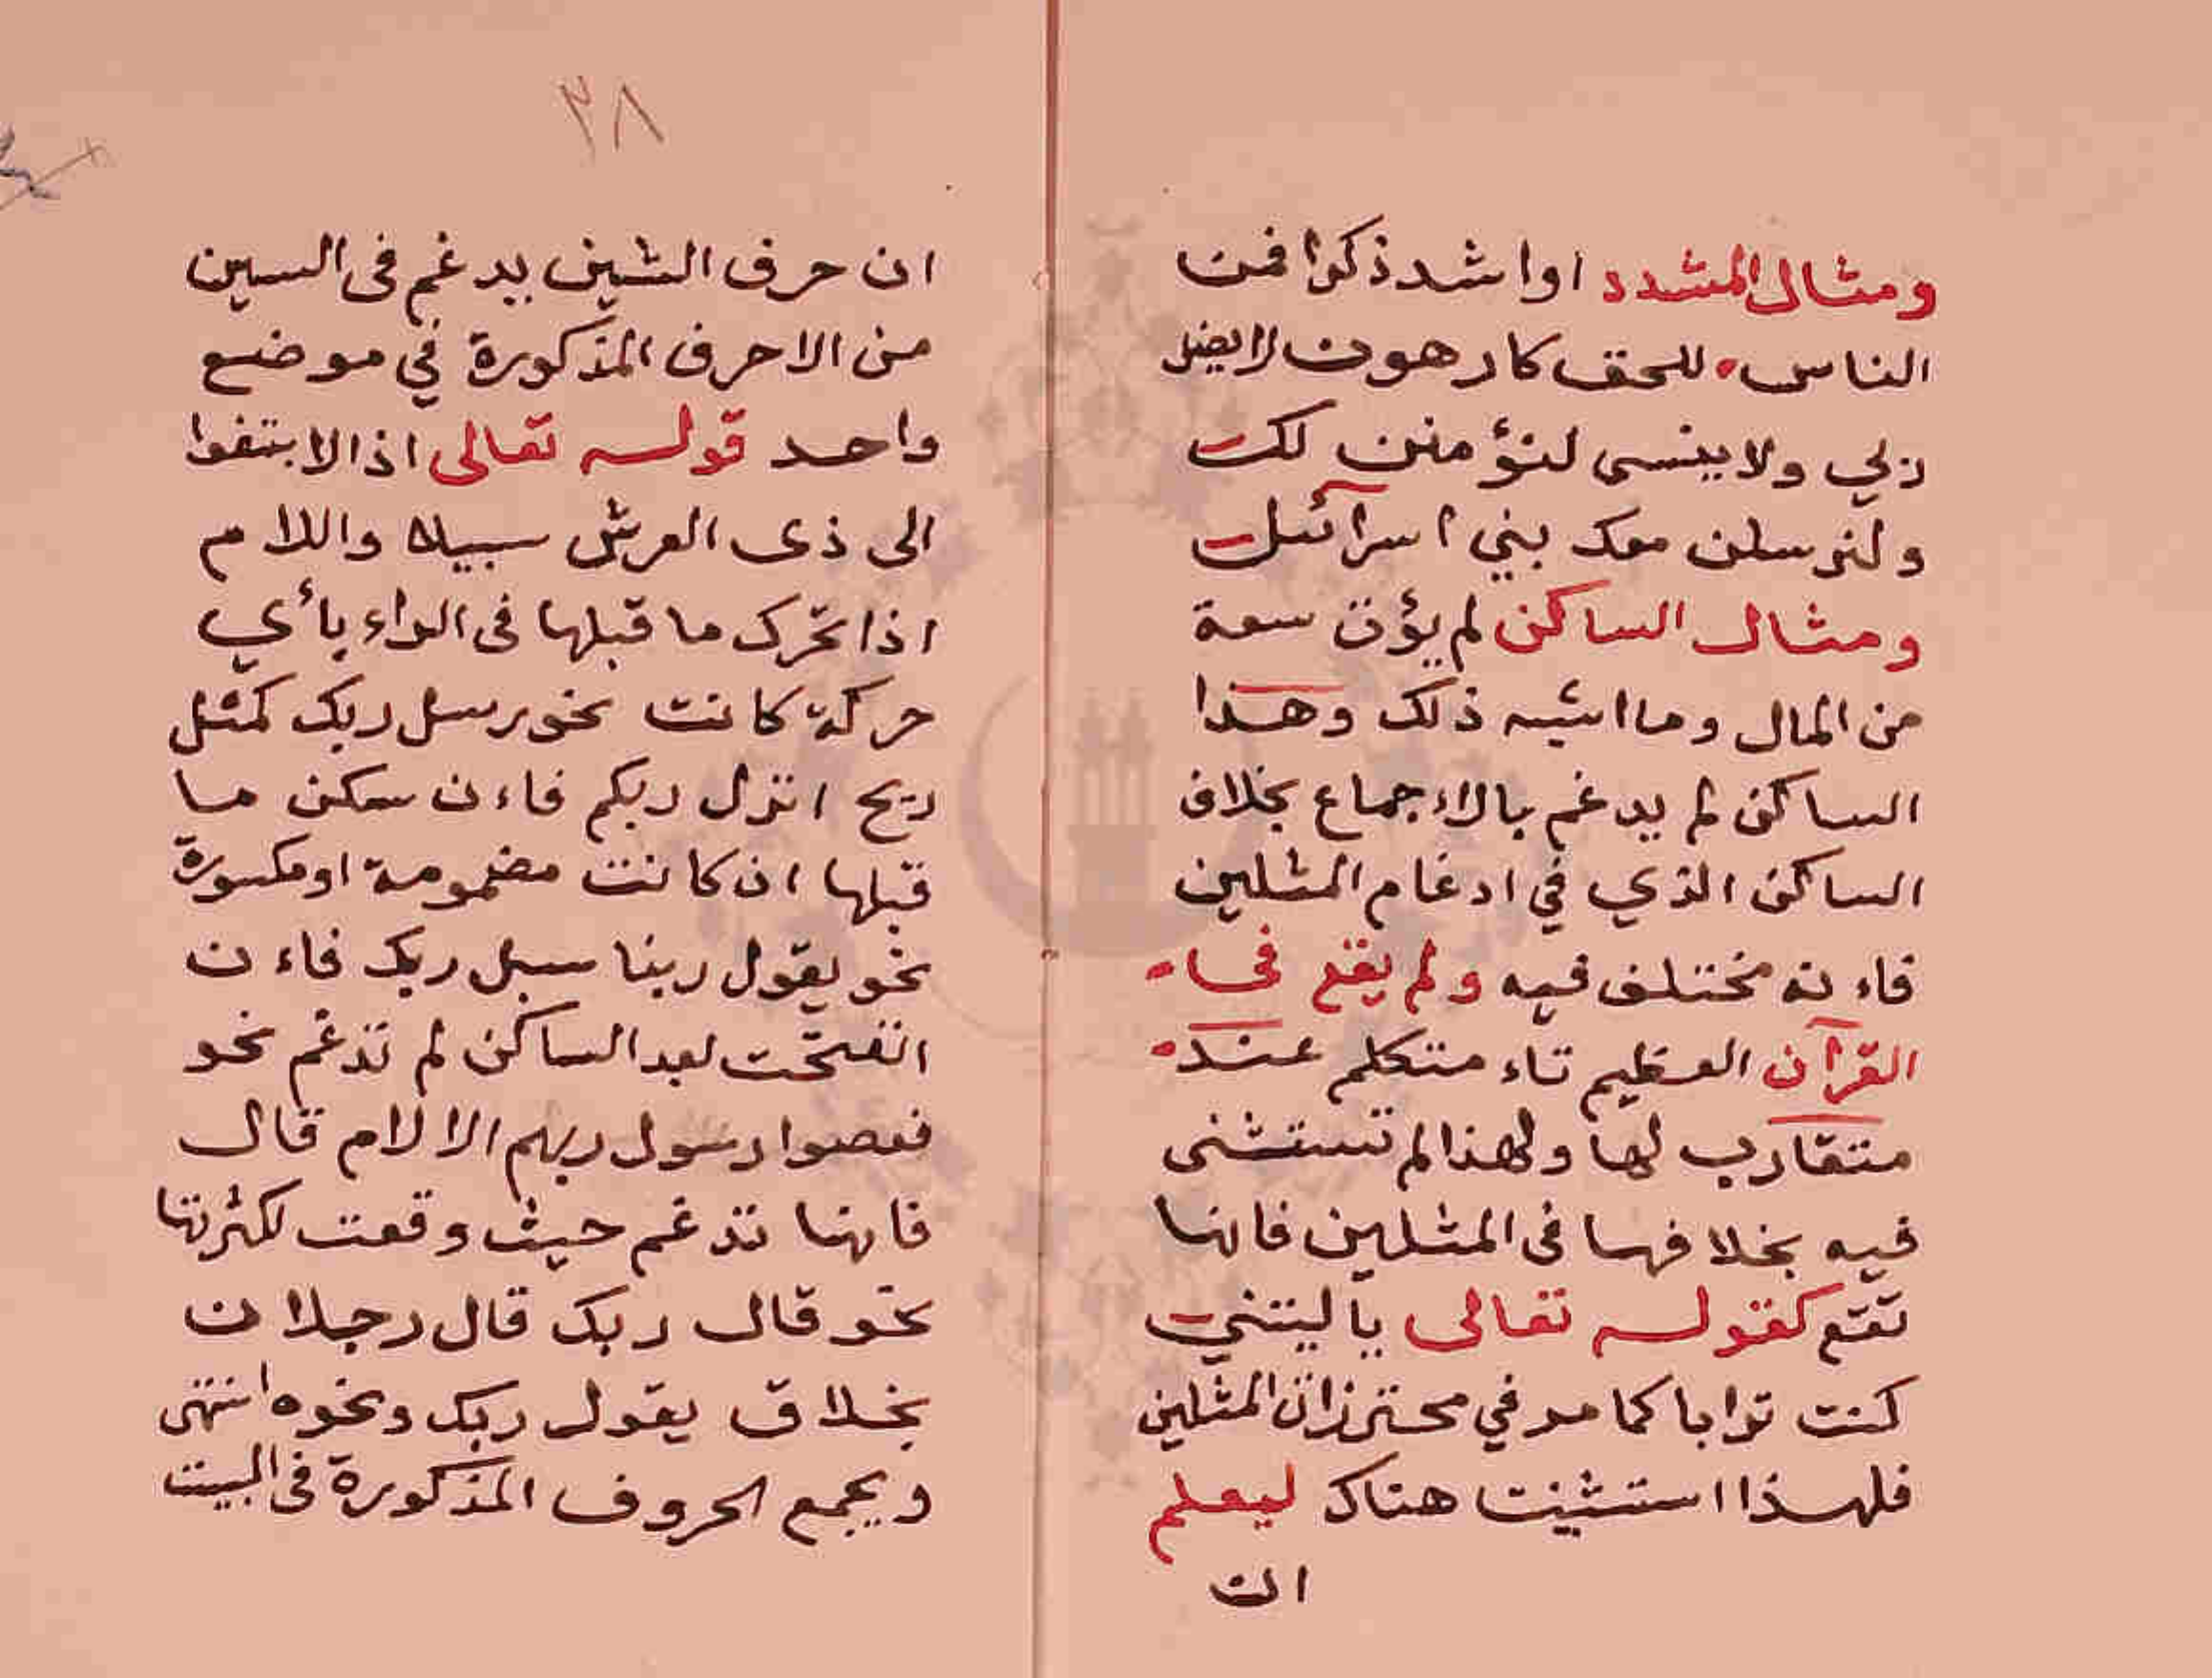 ومثال المشدد اواشد ذكرا فمن
الناس للحق كارهون لايضل
ربي ولاينسى لنؤمنن لك
ولنرسلن معك بني اسرآئل
ومثال الساكن لم يؤت سعة
من المال وما اشبه ذلك وهذا
الساكن لم يدغم بالاءجماع بخلاف
الساكن الذي في ادغام المثلين
فاءنه مختلف فيه ولم يقع في
القرآن العظيم تاء متكلم عند
متقارب لها ولهذا لم تستثنى
فيه بخلافها فى المثلين فانها
تقع كقوله تعالى ياليتني
كنت ترابا كما مر في محترزات المثلين
فلهذا استثنيت هناك ليعلم
ان
٣٨
ان حرف الشين يدغم فى السين
من الاحرف المذكورة في موضع
واحد قوله تعالى اذا لابتغوا
الى ذى العرش سبيلا واللام
اذا تحرك ما قبلها فى الراء بأي
حركة كانت نحو رسل ربك كمثل
ريح انزل ربكم فاءن سكن ما
قبلها ان كانت مضمومة اومكسورة
نحو يقول ربنا سبل ربك فاءن
انفتحت بعد الساكن لم تدغم نحو
فعصوا رسول ربهم الا لام قال
فانها تدغم حيث وقعت لكثرتها
نحو قال ربك قال رجلان
بخلاف يقول ربك ونحوه انتهى
ويجمع الحروف المذكورة فى البيت